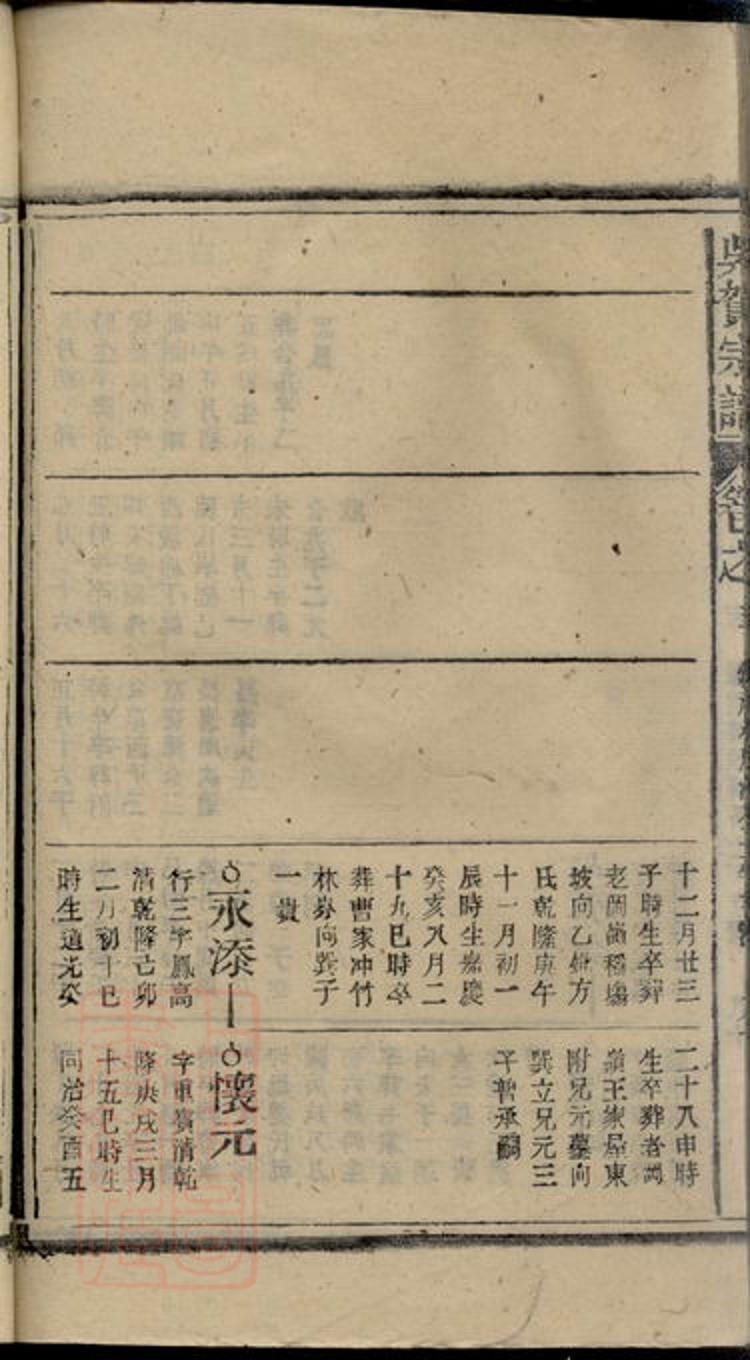 吳賀宗譜
卷之
十二月廿三
子時生卒葬
老閣嶺稻塲
坡向乙妣方
氏乾隆庚午
十一月初一
辰時生嘉慶
癸亥八月二
十九巳時卒
葬曹家冲竹
林旁向巽子
一貴
永添
行三字鳳高
清乾隆己卯
二月初十巳
時生道光癸
二十八申時
生卒葬者
嶺王家屋東
附兄元墓向
巽立兄元三
子哲承嗣
懷元
字重賓清乾
隆庚戌三月
十五巳時生
同治癸酉五